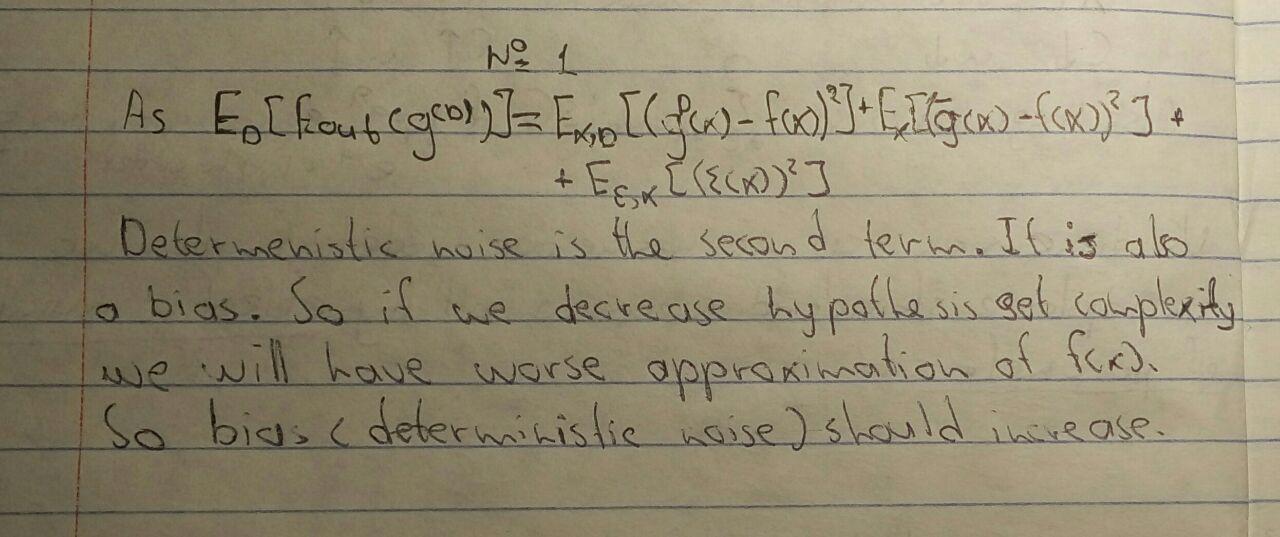 № 1
As E_D[E_out(g^(D))] = E_x,D[(g(x) - f(x))²] + E_x[(g̅(x) - f(x))²] +
+ E_ε,x[(ε(x))²]
Determenistic noise is the second term. It is also
a bias. So if we decrease hypothesis set complexity
we will have worse approximation of f(x).
So bias (deterministic noise) should increase.